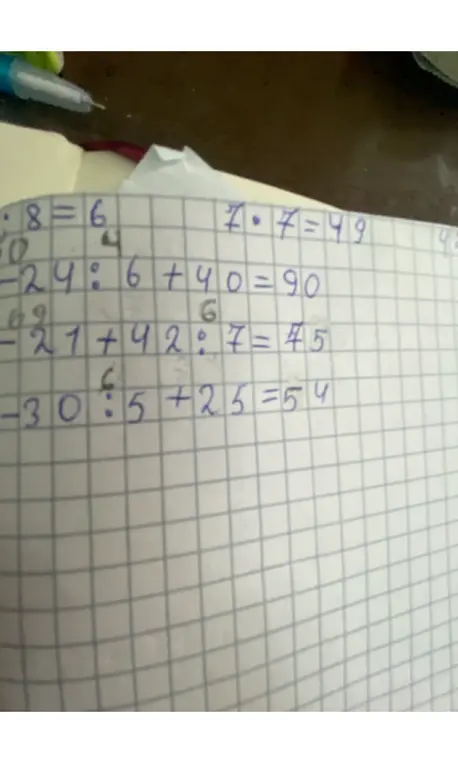 : 8 = 6 7 · 7 = 49 4
50 4
- 24 : 6 + 40 = 90
69 6
- 21 + 42 : 7 = 75
6
- 30 : 5 + 25 = 54